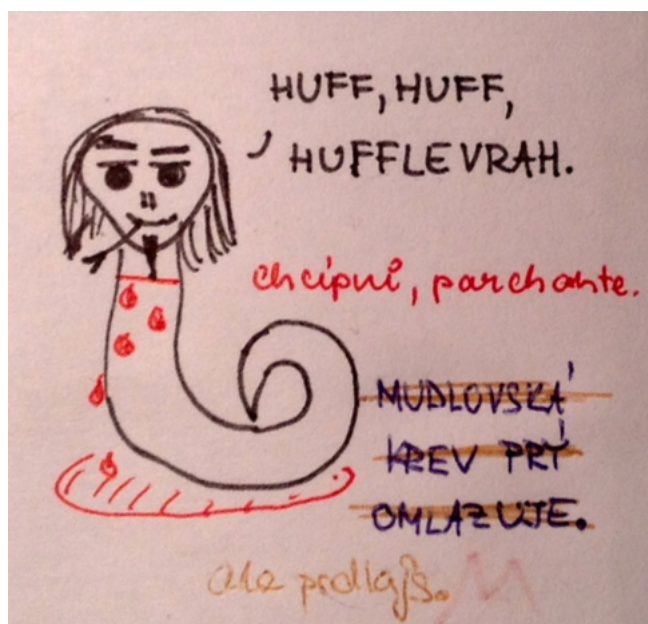 HUFF, HUFF,
HUFFLEVRAH.
chcípni, parchante.
MUDLOVSKÁ
KREV PRÝ
OMLAZUJE.
ale